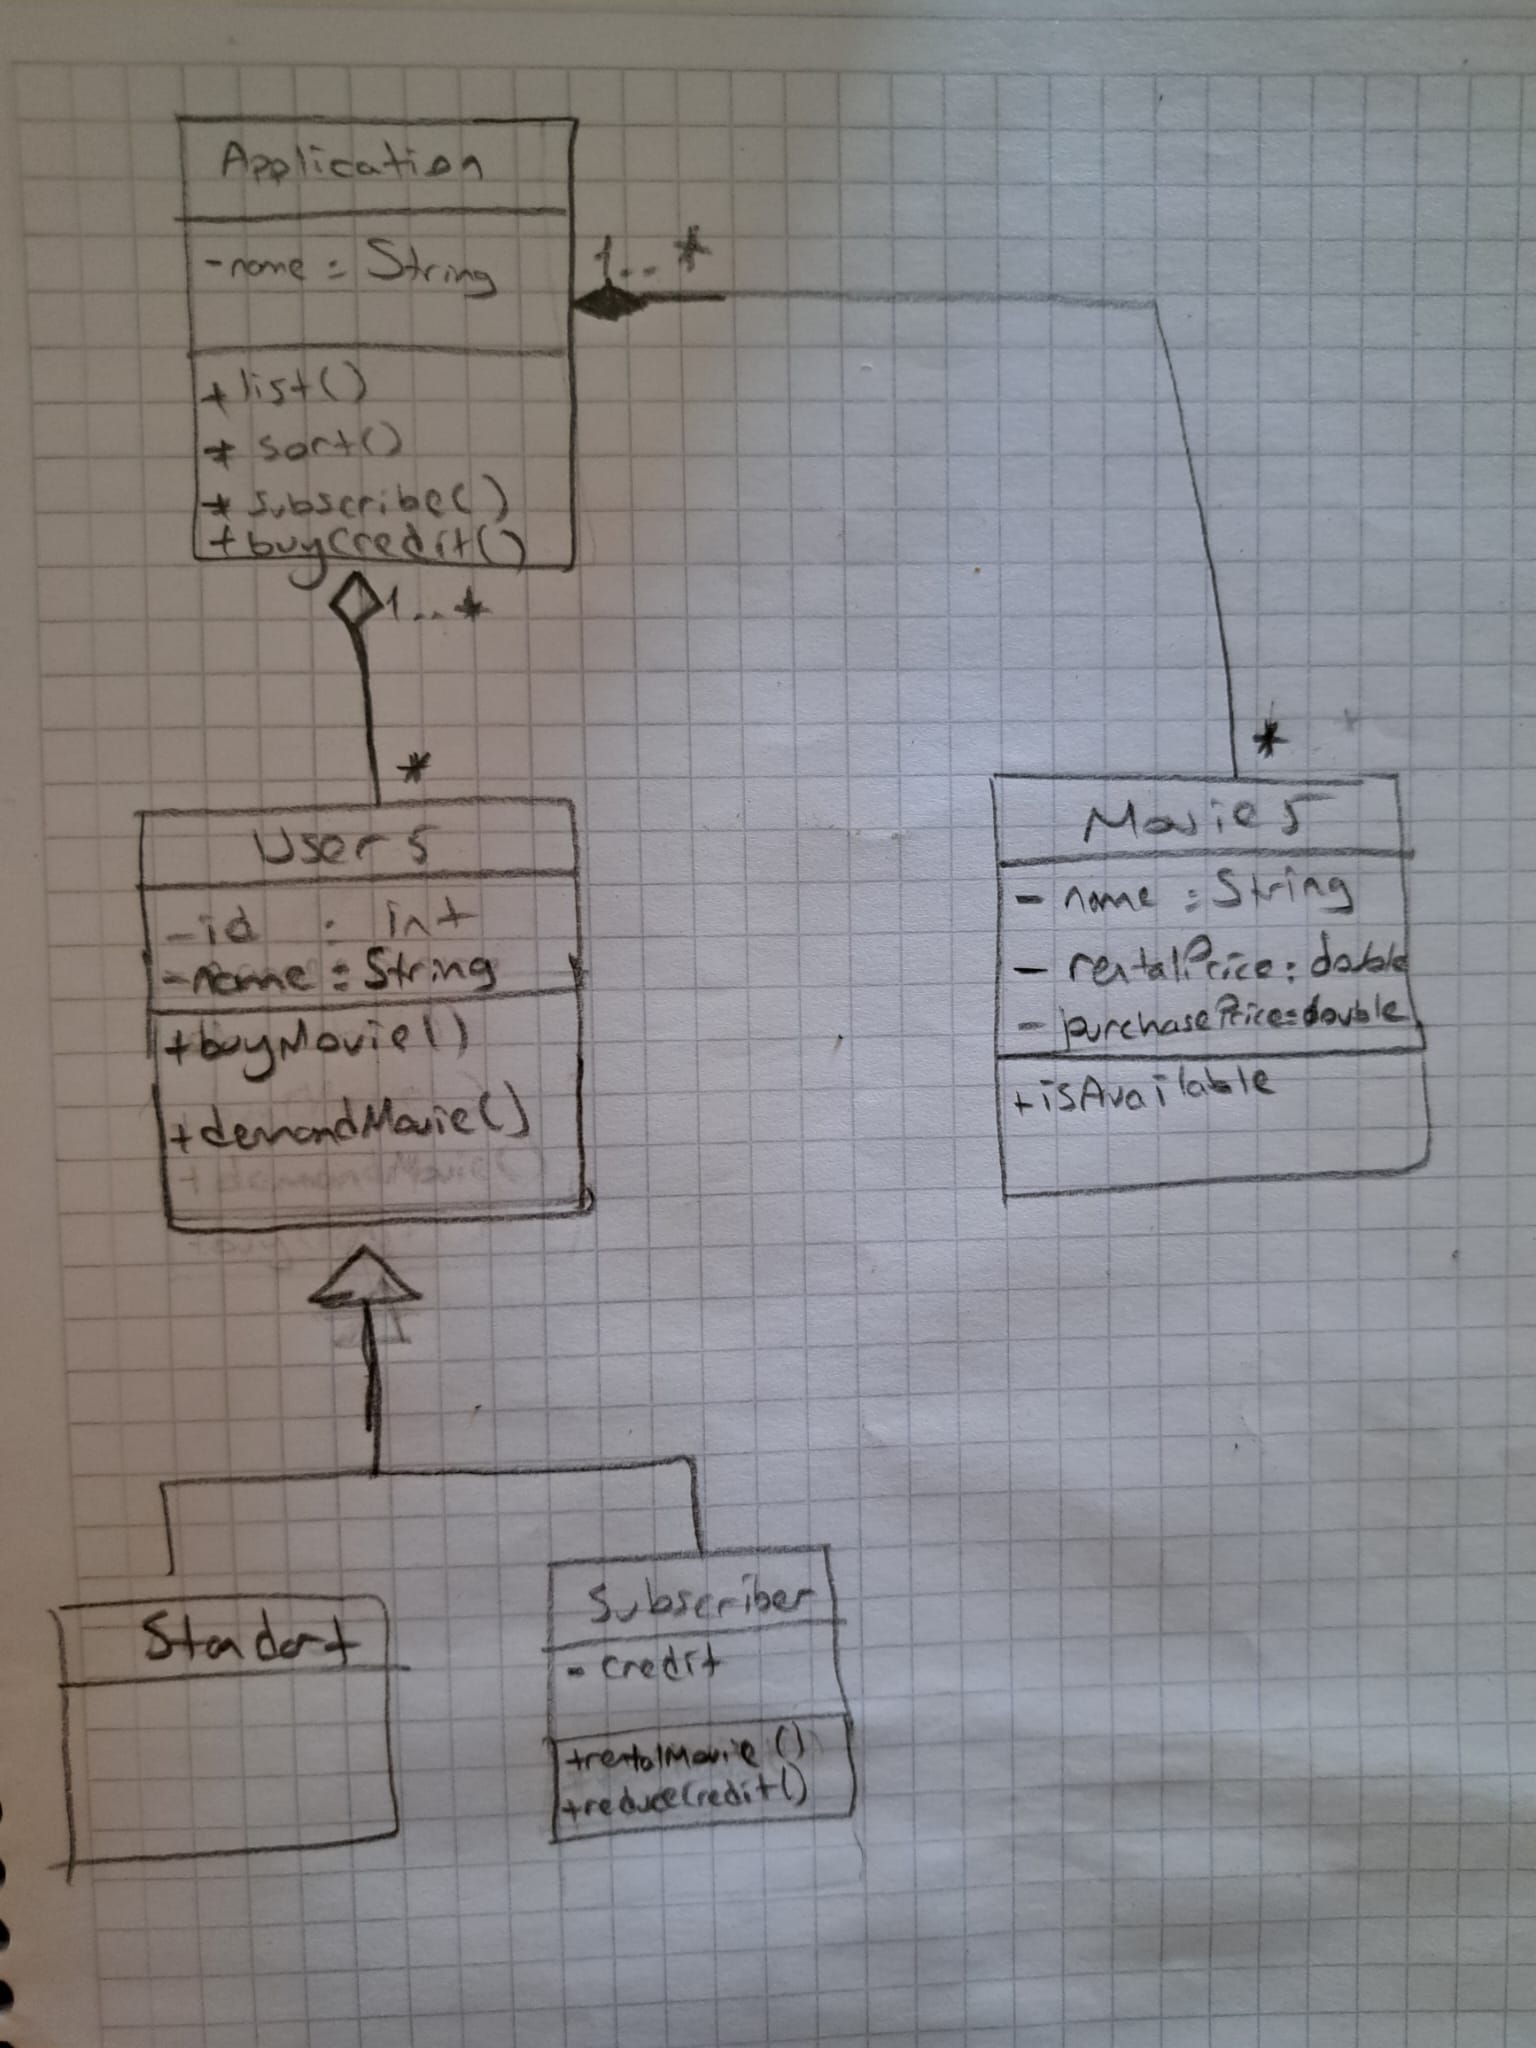 Application
-name : String
1..*
+list()
* sort()
* subscribe()
+buyCredit()
1..*
*
*
Users
-id : int
-name : String
+buyMovie()
+demandMovie()
Movies
- name : String
- rentalPrice : double
- purchasePrice : double
+isAvailable
Standart
Subscriber
- credit
+rentalMovie ()
+reduceCredit()